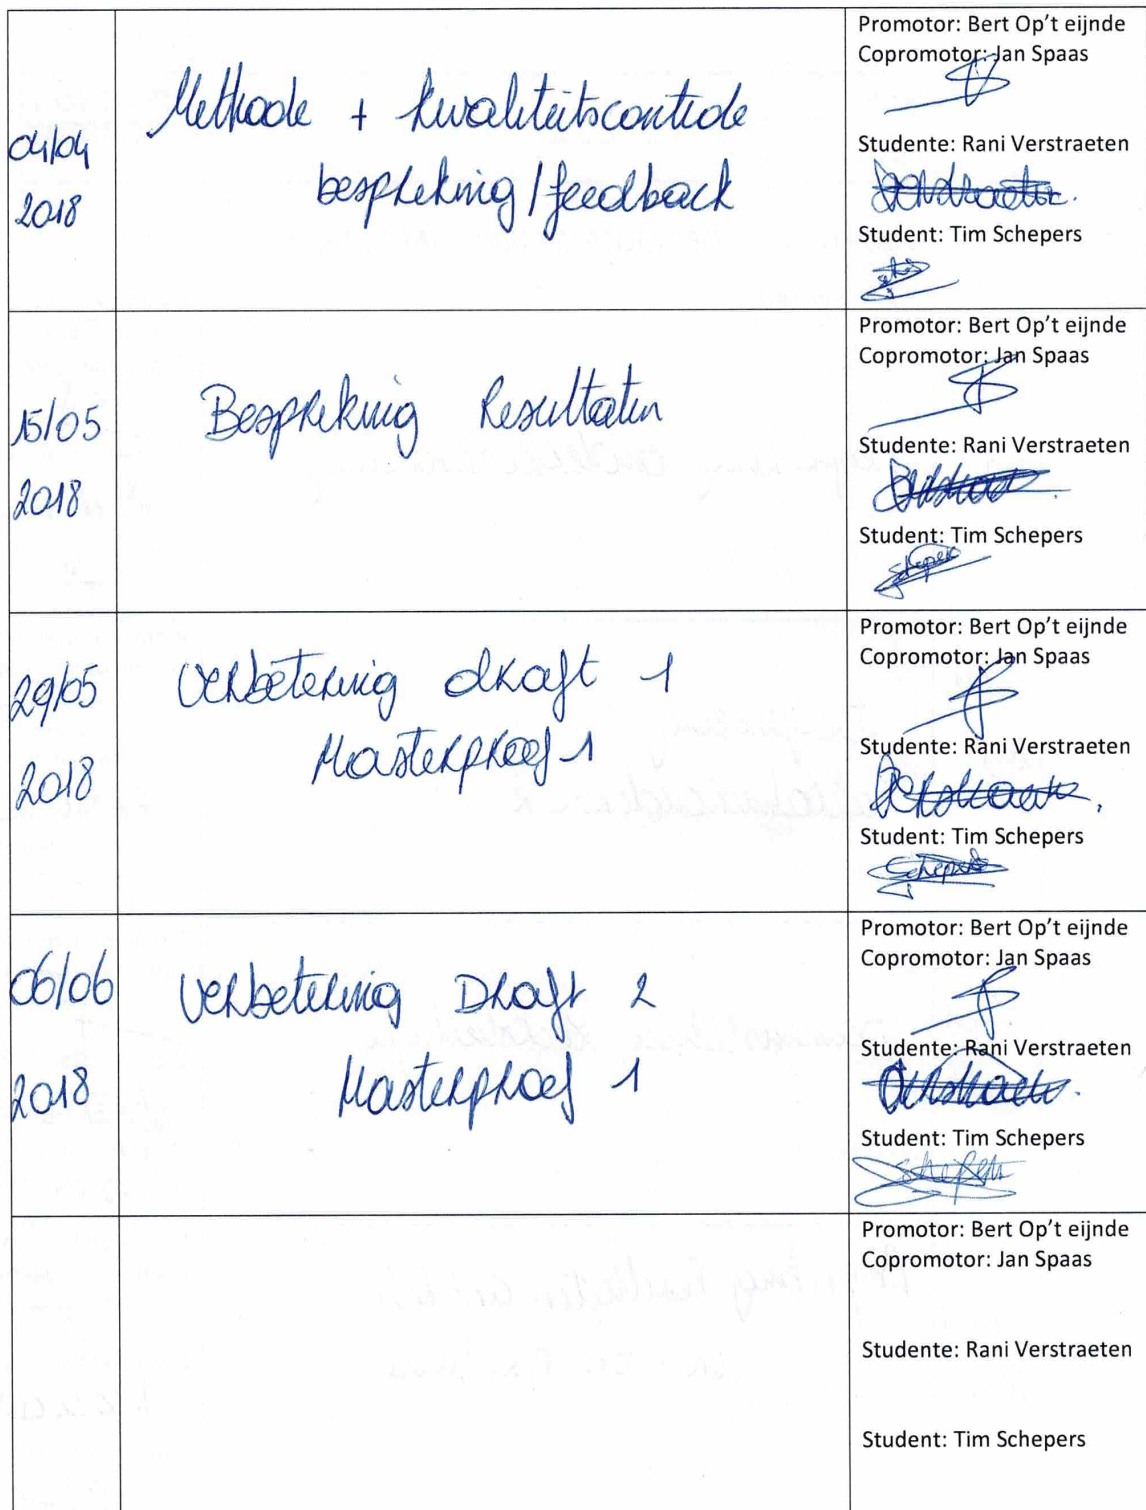 04/04
2018
Methode + kwaliteitscontrole
bespreking/feedback
Promotor: Bert Op't eijnde
Copromotor: Jan Spaas
Studente: Rani Verstraeten
Student: Tim Schepers
15/05
2018
Bespreking Resultaten
Promotor: Bert Op't eijnde
Copromotor: Jan Spaas
Studente: Rani Verstraeten
Student: Tim Schepers
29/05
2018
Verbetering draft 1
Masterproef 1
Promotor: Bert Op't eijnde
Copromotor: Jan Spaas
Studente: Rani Verstraeten
Student: Tim Schepers
06/06
2018
Verbetering Draft 2
Masterproef 1
Promotor: Bert Op't eijnde
Copromotor: Jan Spaas
Studente: Rani Verstraeten
Student: Tim Schepers
Promotor: Bert Op't eijnde
Copromotor: Jan Spaas
Studente: Rani Verstraeten
Student: Tim Schepers